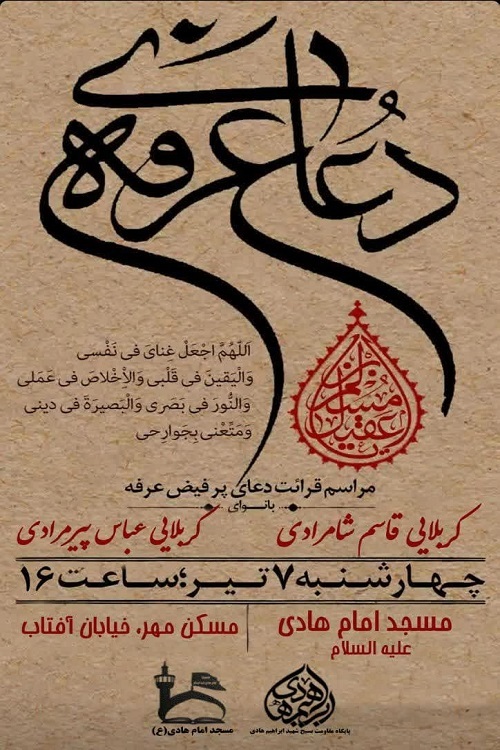 دعای عرفه
مسلم ابن عقیل
اَللّهُمَّ اجْعَلْ غِنایَ فی نَفْسی
وَالْیَقینَ فی قَلْبی وَالْاِخْلاصَ فی عَمَلی
وَالنُّورَ فی بَصَری وَالْبَصیرَةَ فی دینی
وَمَتِّعْنی بِجَوارِحی
مراسم قرائت دعای پر فیض عرفه
بانوای
کربلایی قاسم شامرادی
کربلایی عباس پیرمرادی
چهارشنبه ۷ تیر؛ ساعت ۱۶
مسجد امام هادی
علیه السلام
مسکن مهر، خیابان آفتاب
ابراهیم هادی
پایگاه مقاومت بسیج شهید ابراهیم هادی
مسجد امام هادی(ع)